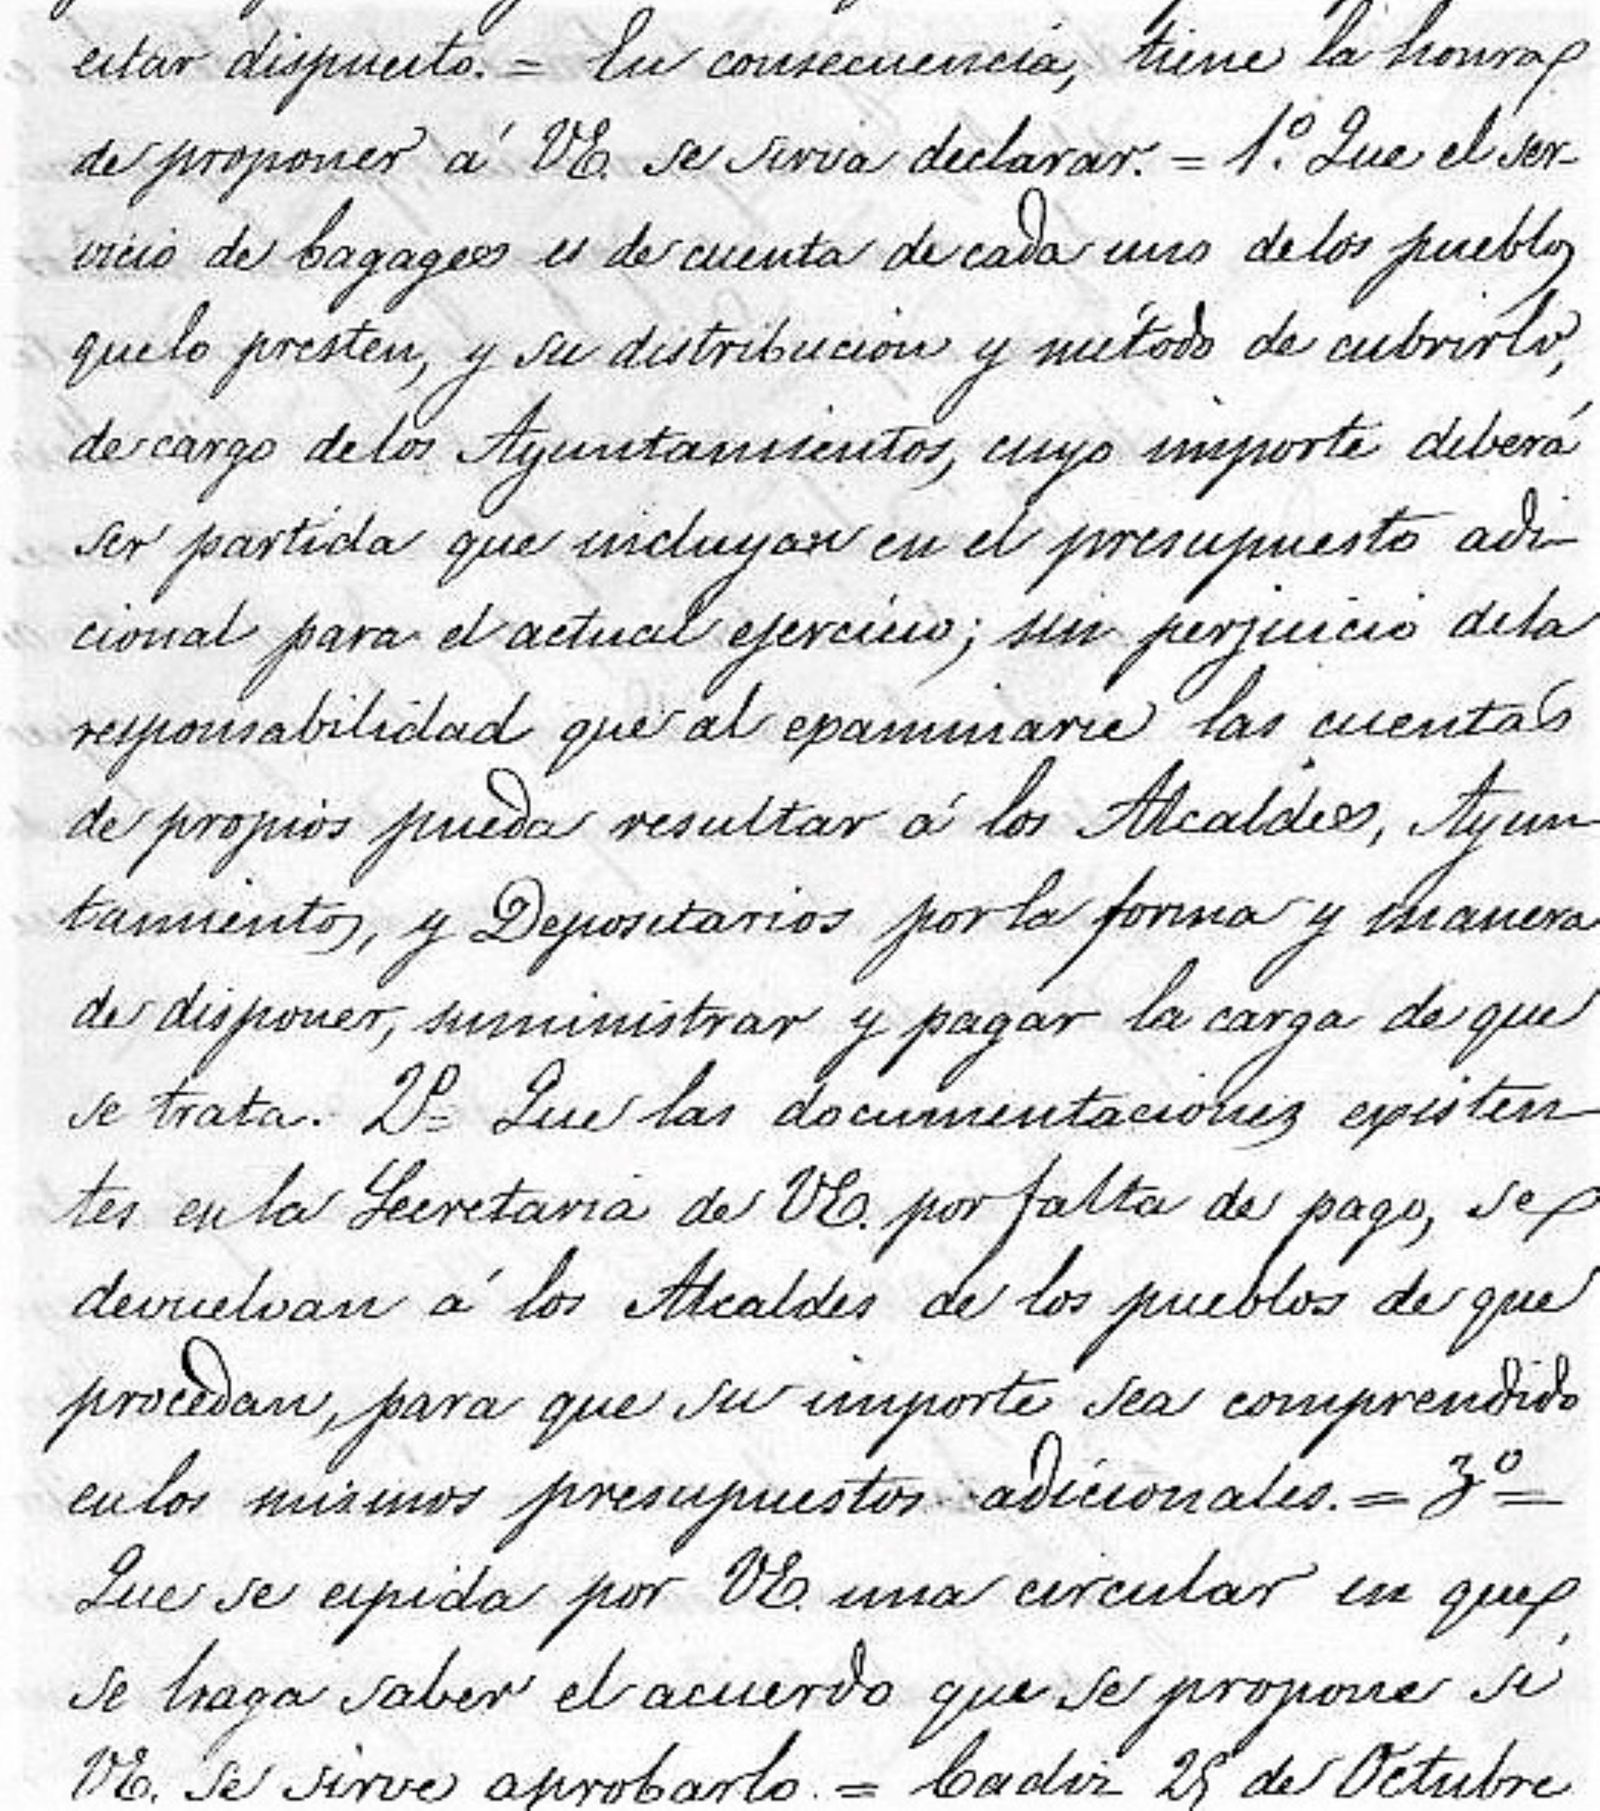 estar dispuesto. = En consecuencia, tiene la honra
de proponer á VE. se sirva declarar. = 1.º Que el ser-
vicio de bagages es de cuenta de cada uno de los pueblos
que lo presten, y su distribucion y método de cubrirlo,
de cargo de los Ayuntamientos, cuyo importe deberá
ser partida que incluyan en el presupuesto adi-
cional para el actual ejercicio; sin perjuicio de la
responsabilidad que al examinarse las cuentas
de propios pueda resultar á los Alcaldes, Ayun-
tamientos, y Depositarios por la forma y manera
de disponer, suministrar y pagar la carga de que
se trata. 2º= Que las documentaciones existen-
tes en la Secretaria de VE. por falta de pago, se
devuelvan á los Alcaldes de los pueblos de que
procedan, para que su importe sea comprendido
en los mismos presupuestos adicionales. = 3º=
Que se espida por VE. una circular en que
se haga saber el acuerdo que se propone si
VE. se sirve aprobarlo. = Cadiz 25 de Octubre